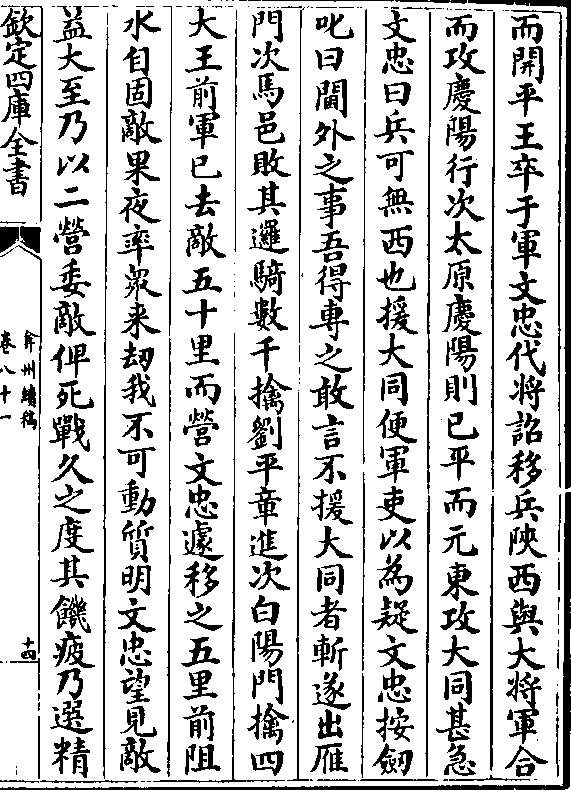 而開平王卒于軍文忠代將詔移兵陜西與大將軍合
而攻慶陽行次太原慶陽則已平而元東攻大同甚急
文忠曰兵可無西也援大同便軍吏以為疑文忠按劒
叱曰閫外之事吾得専之敢言不援大同者斬遂出雁
門次馬邑敗其邏騎數千擒劉平章進次白陽門擒四
大王前軍已去敵五十里而營文忠遽移之五里前阻
水自固敵果夜率衆来刼我不可動質明文忠望見敵
益大至乃以二營委敵俾死戰久之度其饑疲乃選精
欽定四庫全書
弇州續稿
卷八十一
十四